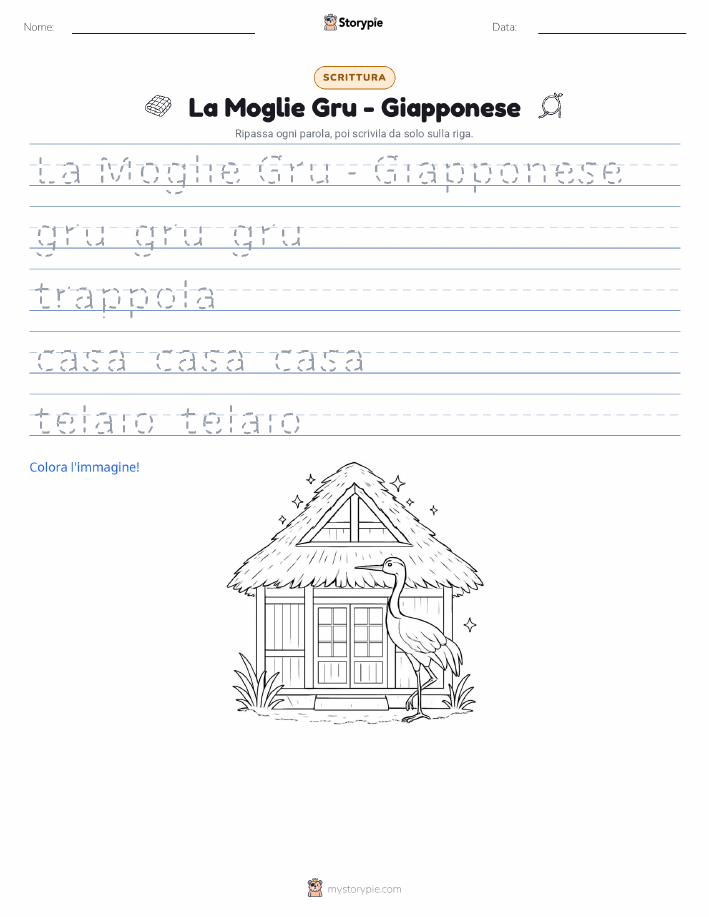 Nome:
Storypie
Data:
SCRITTURA
La Moglie Gru - Giapponese
Ripassa ogni parola, poi scrivila da solo sulla riga.
La Moglie Gru - Giapponese
gru gru gru
trappola
casa casa casa
telaio telaio
Colora l'immagine!
mystorypie.com